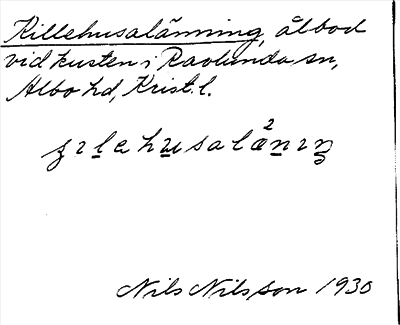 Killehusalänning, ålbod
vid kusten i Ravlunda sn,
Albo hd, Krist. l.
Nils Nilsson 1930